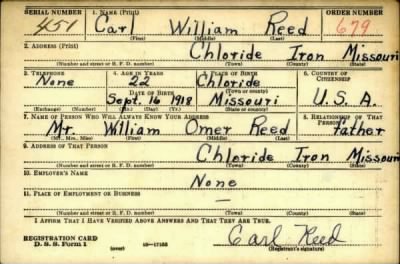 SERIAL NUMBER 1. NAME (Print) ORDER NUMBER
451 Carl William Reed 679
(First) (Middle) (Last)
2. ADDRESS (Print)
Chloride Iron Missouri
(Number and street or R. F. D. number) (Town) (County) (State)
3. TELEPHONE 4. AGE IN YEARS 5. PLACE OF BIRTH 6. COUNTRY OF CITIZENSHIP
None 22 Chloride
DATE OF BIRTH (Town or county)
Sept. 16 1918 Missouri U.S.A.
(Exchange) (Number) (Mo.) (Day) (Yr.) (State or country)
7. NAME OF PERSON WHO WILL ALWAYS KNOW YOUR ADDRESS 8. RELATIONSHIP OF THAT PERSON
Mr. William Omer Reed father
(Mr., Mrs., Miss) (First) (Middle) (Last)
9. ADDRESS OF THAT PERSON
Chloride Iron Missouri
(Number and street or R. F. D. number) (Town) (County) (State)
10. EMPLOYER'S NAME
None
11. PLACE OF EMPLOYMENT OR BUSINESS
—
(Number and street or R. F. D. number) (Town) (County) (State)
I AFFIRM THAT I HAVE VERIFIED ABOVE ANSWERS AND THAT THEY ARE TRUE.
Carl Reed
REGISTRATION CARD
D. S. S. Form 1 (over) (Registrant's signature)